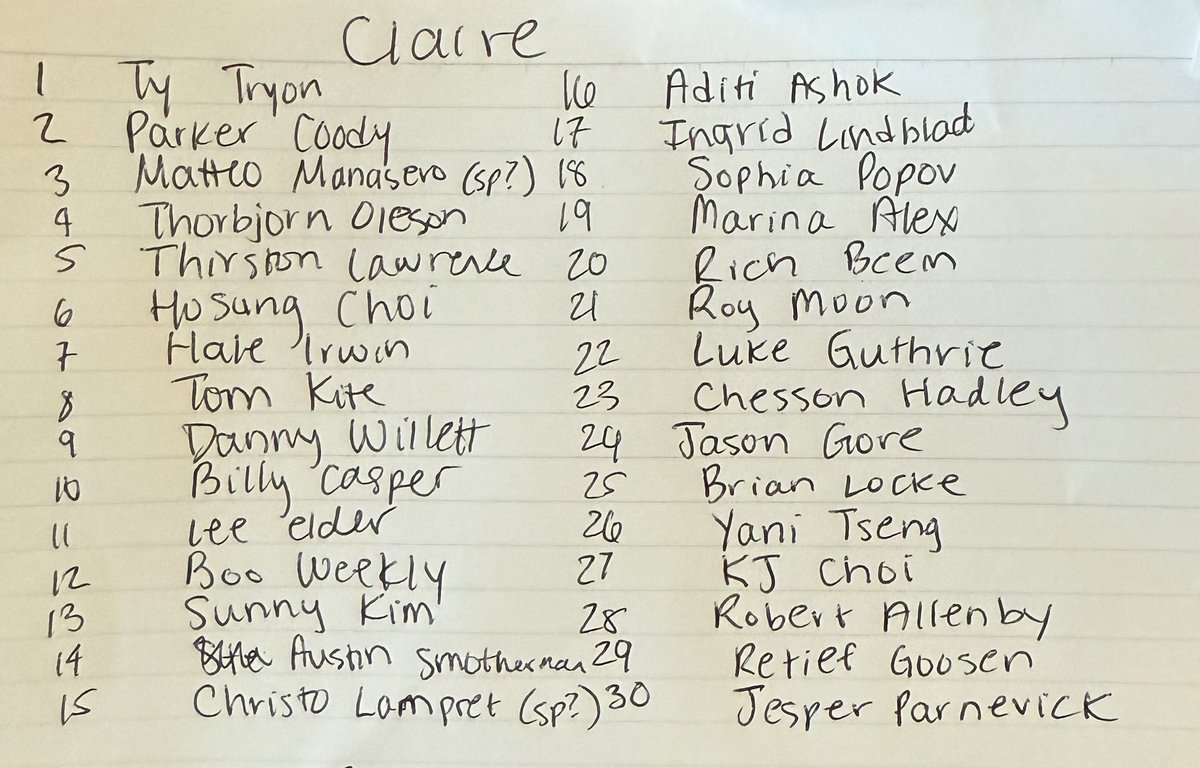 Claire
1 Ty Tryon
2 Parker Coody
3 Matteo Manasero (sp?)
4 Thorbjorn Oleson
5 Thirston Lawrence
6 Hosung Choi
7 Hale Irwin
8 Tom Kite
9 Danny Willett
10 Billy Casper
11 Lee elder
12 Boo Weekly
13 Sunny Kim
14 Austin Smotherman
15 Christo Lampret (sp?)
16 Aditi Ashok
17 Ingrid Lindblad
18 Sophia Popov
19 Marina Alex
20 Rich Beem
21 Roy Moon
22 Luke Guthrie
23 Chesson Hadley
24 Jason Gore
25 Brian Locke
26 Yani Tseng
27 KJ Choi
28 Robert Allenby
29 Retief Goosen
30 Jesper Parnevick